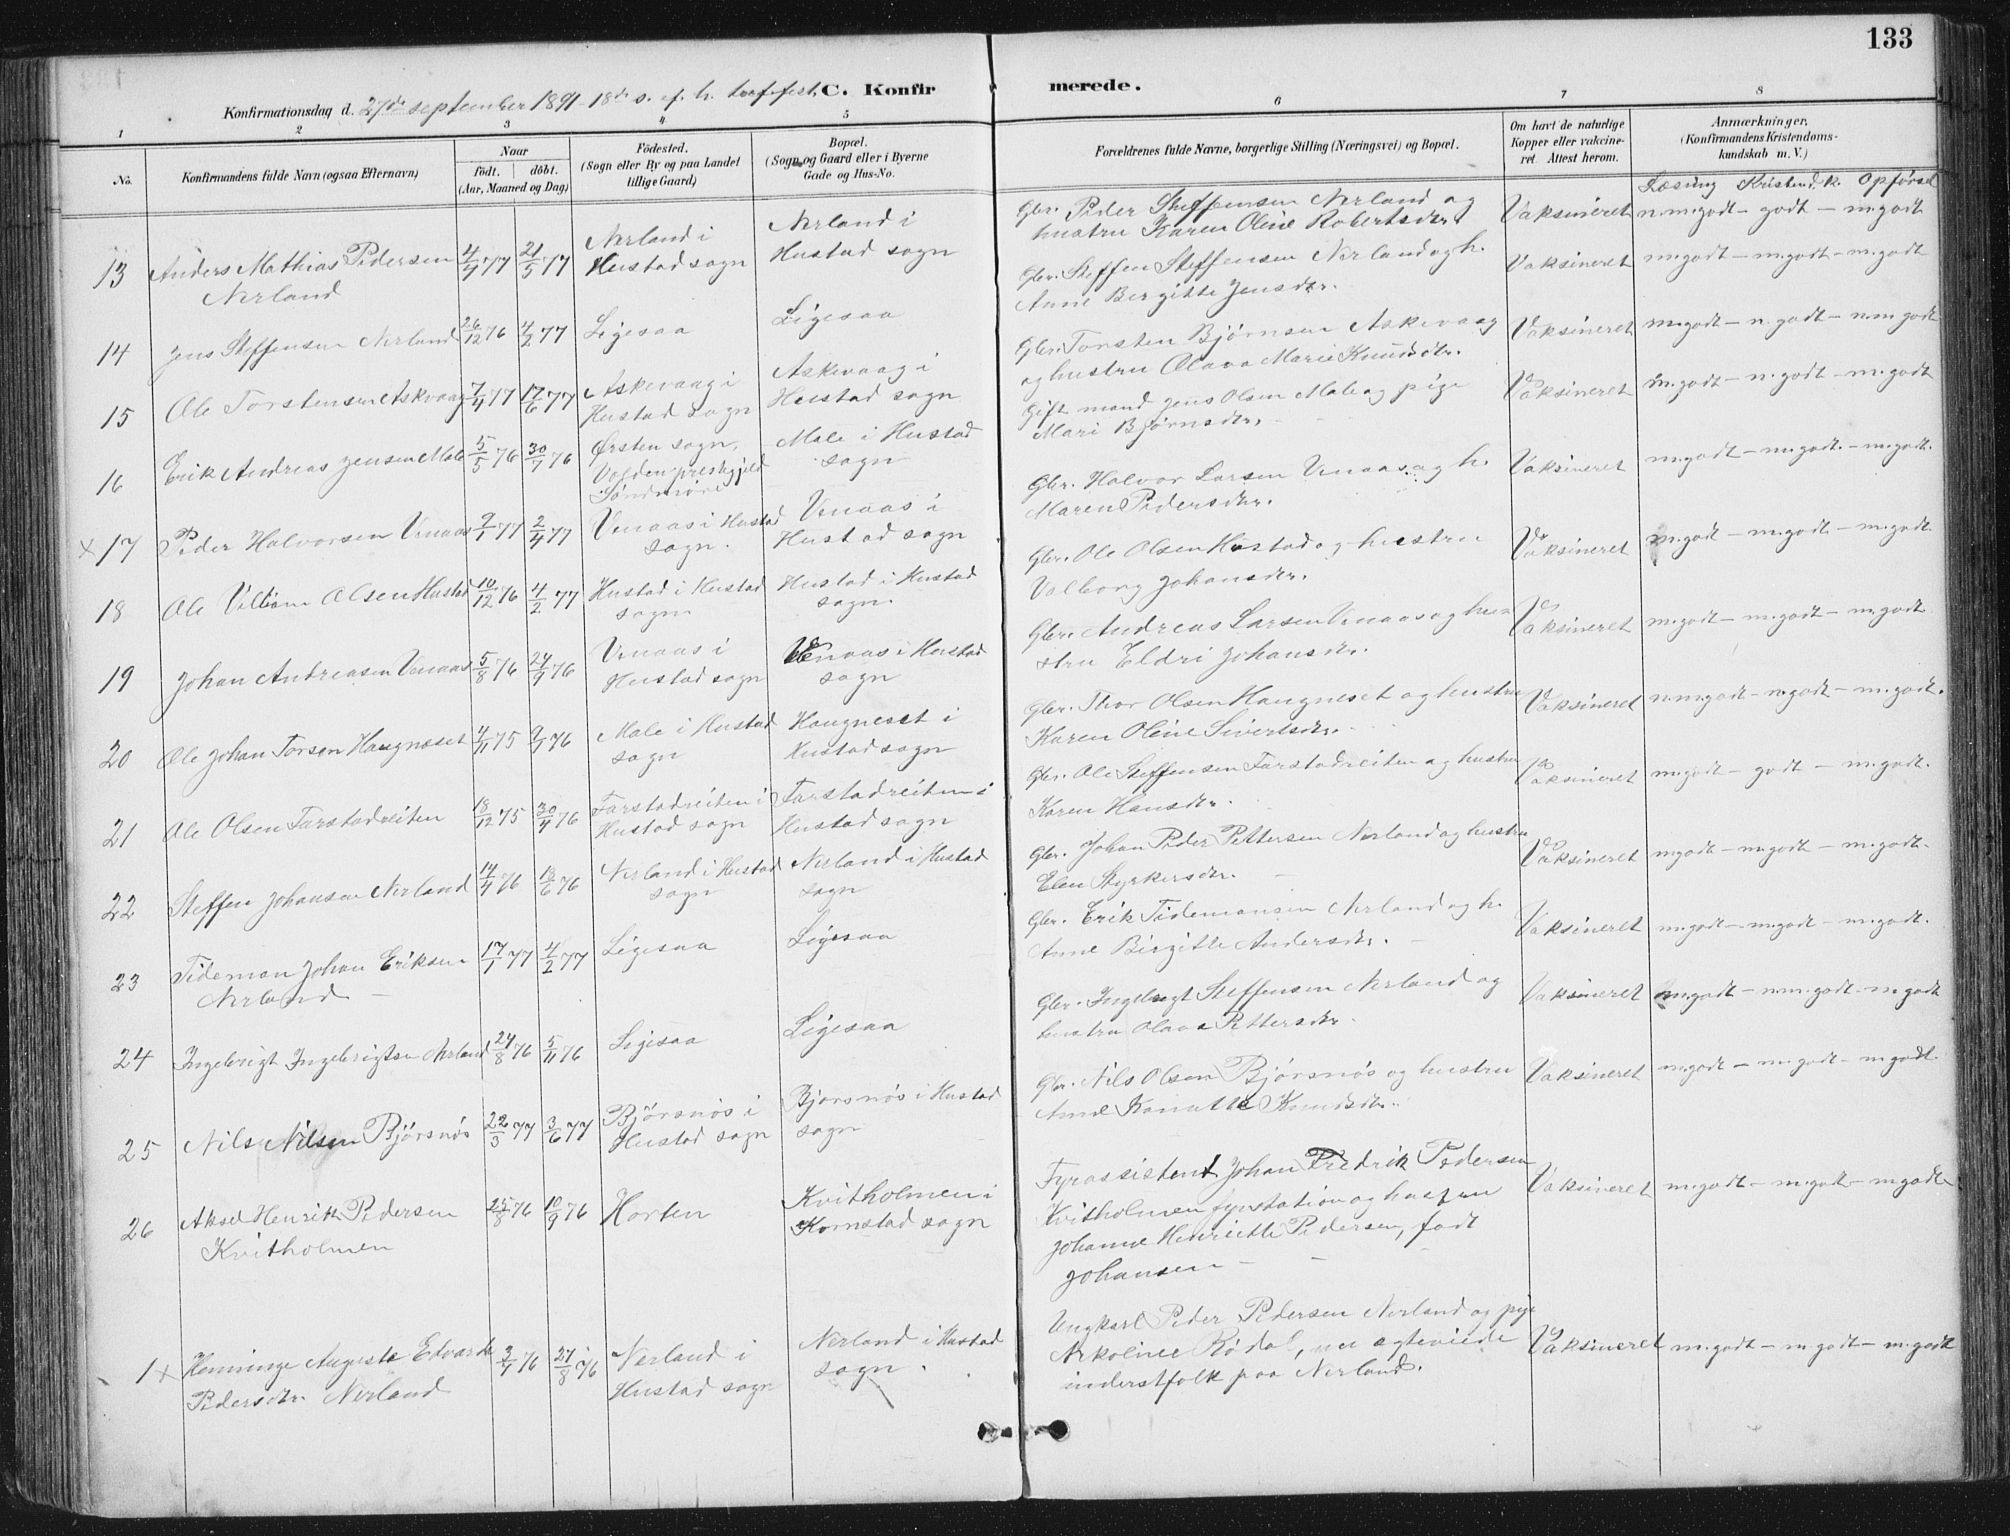 133
C. Konfirmerede.
Konfirmationsdag d. 27de september 1891 - 18de s. ef. h. tref.fest.
1 2 3 4 5 6 7 8
No.
Konfirmandens fulde Navn (ogsaa Efternavn)
Naar
födt. döbt.
(Aar, Maaned og Dag)
Födested.
(Sogn eller By og paa Landet
tillige Gaard)
Bopæl.
(Sogn og Gaard eller i Byerne
Gade og Hus-No.
Forældrenes fulde Navne, borgerlige Stilling (Næringsvei) og Bopæl.
Om havt de naturlige
Kopper eller vakcine-
ret. Attest herom.
Anmærkninger.
(Konfirmandens Kristendoms-
kundskab m. V.)
Læsning Kristend.k. Opførsel
13 Anders Mathias Pedersen Nerland 4/4 77 21/5 77 Nerland i Hustad sogn Nerland i Hustad sogn
Gbr. Peder Steffensen Nerland og hustru Karen Oline Robertsdtr. Vaksineret n.m.godt - godt - m.godt
14 Jens Steffensen Nerland 26/12 76 4/2 77 Ligesaa Ligesaa
Gbr. Steffen Steffensen Nerland og h. Anne Bergitte Jensdtr. Vaksineret m.godt - m.godt - m.godt
15 Ole Torstensen Askvaag 7/4 77 17/6 77 Askevaag i Hustad sogn Askevaag i Hustad sogn
Gbr. Torsten Bjørnsen Askevaag og hustru Olava Marie Knudsdtr. Vaksineret m.godt - n.godt - n.m.godt
16 Erik Andreas Jensen Male 5/5 76 30/7 76 Ørsten sogn, Volden prestegjeld Søndmøre Male i Hustad sogn
Gift mand Jens Olsen Male og pige Mari Bjørnsdtr. Vaksineret m.godt - n.godt - m.godt
x 17 Peder Halvorsen Venaas 9/1 77 2/4 77 Venaas i Hustad sogn. Venaas i Hustad sogn
Gbr. Halvor Larsen Venaas og h. Maren Pedersdtr. Vaksineret m.godt - m.godt. - m.godt
18 Ole Villiam Olsen Hustad 10/12 76 4/2 77 Hustad i Hustad sogn Hustad i Hustad sogn.
Gbr. Ole Olsen Hustad og hustru Valborg Johansdtr. Vaksineret m.godt - m.godt - m.godt
19 Johan Andreasen Venaas 5/8 76 24/9 76 Venaas i Hustad sogn Venaas i Hustad sogn
Gbr. Andreas Larsen Venaas og hustru Eldri Johansdtr. Vaksineret m.godt - m.godt - m.godt
20 Ole Johan Torsen Haugneset 4/11 75 9/1 76 Male i Hustad sogn Haugneset i Hustad sogn
Gbr. Thor Olsen Haugneset og hustru Karen Oline Sivertsdtr. Vaksineret n.m.godt - n.godt - m.godt.
21 Ole Olsen Farstadreiten 18/12 75 30/4 76 Farstadreiten i Hustad sogn Farstadreiten i Hustad sogn
Gbr. Ole Steffensen Farstadreiten og hustru Karen Hansdtr. Vaksineret m.godt - godt - m.godt.
22 Steffen Johansen Nerland 14/4 76 18/6 76 Nerland i Hustad sogn Nerland i Hustad sogn
Gbr. Johan Peder Pettersen Nerland og hustru Elen Styrkersdtr. Vaksineret m.godt - m.godt - m.godt.
23 Tideman Johan Eriksen Nerland 17/1 77 4/2 77 Ligesaa Ligesaa
Gbr. Erik Tidemansen Nerland og h. Anne Birgitte Andersdtr. Vaksineret m.godt - m.godt - m.godt.
24 Ingebrigt Ingebrigtsen Nerland 24/8 76 5/11 76 Ligesaa Ligesaa
Gbr. Ingebrigt Steffensen Nerland og hustru Olava Pettersdtr. Vaksineret m.godt - n.m.godt - m.godt
25 Nils Nilsen Bjørsnøs 22/3 77 3/6 77 Bjørsnøs i Hustad sogn Bjørsnøs i Hustad sogn
Gbr. Nils Olsen Bjørsnøs og hustru Anne Knudsdtr. Vaksineret m.godt - m.godt - m.godt.
26 Aksel Henrik Pedersen Kvitholmen 25/8 76 10/9 76 Horten Kvitholmen i Kornstad sogn
Fyrassistent Johan Fredrik Pedersen Kvitholmen fyrstation og hustru Johanne Henriette Pedersen, født Johansen Vaksineret m.godt - m.godt - m.godt
1 x Henninge Auguste Edvarda Pedersdtr. Nerland 3/7 76 27/8 76 Nerland i Hustad sogn Nerland i Hustad sogn.
Ungkarl Peder Pedersen Nerland og pige Nekoline Rødal, nu egteviede inderstfolk paa Nerland. Vaksineret m.godt - m.godt - m.godt